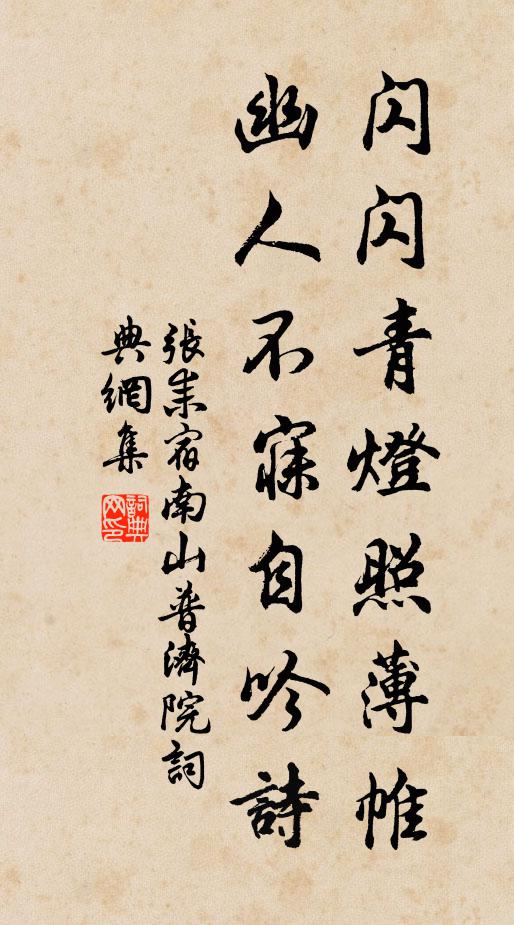 閃閃青燈照薄帷
幽人不寐自吟詩
張耒宿南山普濟院詞
典網集
詞典網印